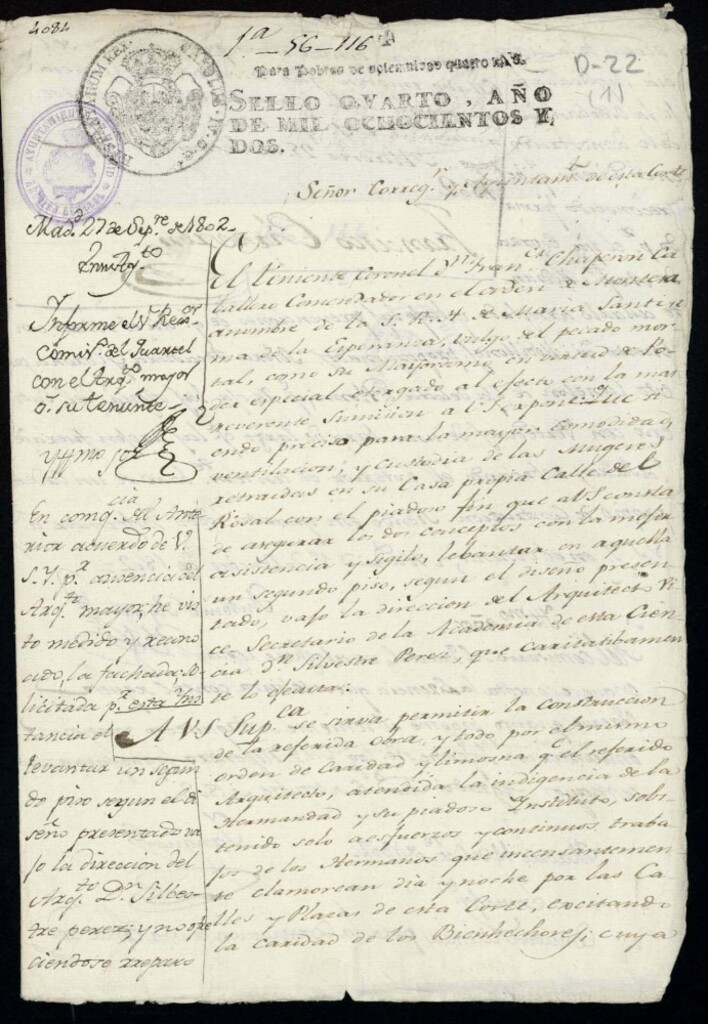 4084
1ª-56-116
D-22
(1)
Para Pobres de solemnidad quatro mrs.
SELLO QVARTO, AÑO
DE MIL OCHOCIENTOS Y
DOS.
AYUNTAMIENTO
Señor Correg.r y Ayuntam.to de esta Corte
Mad.d 27 de Sep.re de 1802.
En su Ay.to
Informe el S.r Rexor
Comis.o del Quartel
con el Arq.to mayor
o su teniente
En comq.cia del Ante-
rior acuerdo de V.
S. Y. p.r ausencia del
Arq.to mayor, he vis-
to medido y recono-
cido, la fachada, so-
licitada p.r esta Ins
tancia el
levantar un segun
do piso segun el di
seño presentado va
jo la direccion del
Arq.to D.n Silbes-
tre perez; y no ofre
ciendose reparo
El Tiniente Coronel D.n Fran.co Chaperon Ca
ballero Comendador en el orden de Montesa
a nombre de la S. R. H. de Maria Santisi
ma de la Esperanza, vulgo, del pecado mor-
tal, como su Mayordomo en virtud de Po-
der especial otorgado al efecto con la mas
reverente Sumision a V.S. expone: que si
endo preciso para la mayor comodidad,
ventilacion, y custodia de las Mugeres
retraidas en su Casa propia Calle del
Rosal con el piadoso fin que a V.S. consta
de asegurar los dos conceptos con la mejor
asistencia y sigilo, levantar en aquella
un segundo piso, segun el diseño presen
tado, vajo la direccion del Arquitecto Vi
ce Secretario de la Academia de esta Cien-
cia D.n Silvestre Perez, que caritatibamen
te lo efectua:
A V S Sup.ca se sirva permitir la Construccion
de la referida obra, y todo por el mismo
orden de caridad y limosna q.e el referido
Arquitecto, atendida la indigencia de la
Hermandad y su piadoso Instituto, sobs-
tenido solo a esfuerzos y continuos traba
jos de los Hermanos que incensantemen
te clamorean dia y noche por las Ca
lles y Plazas de esta Corte, excitando
la caridad de los Bienhechores; cuya